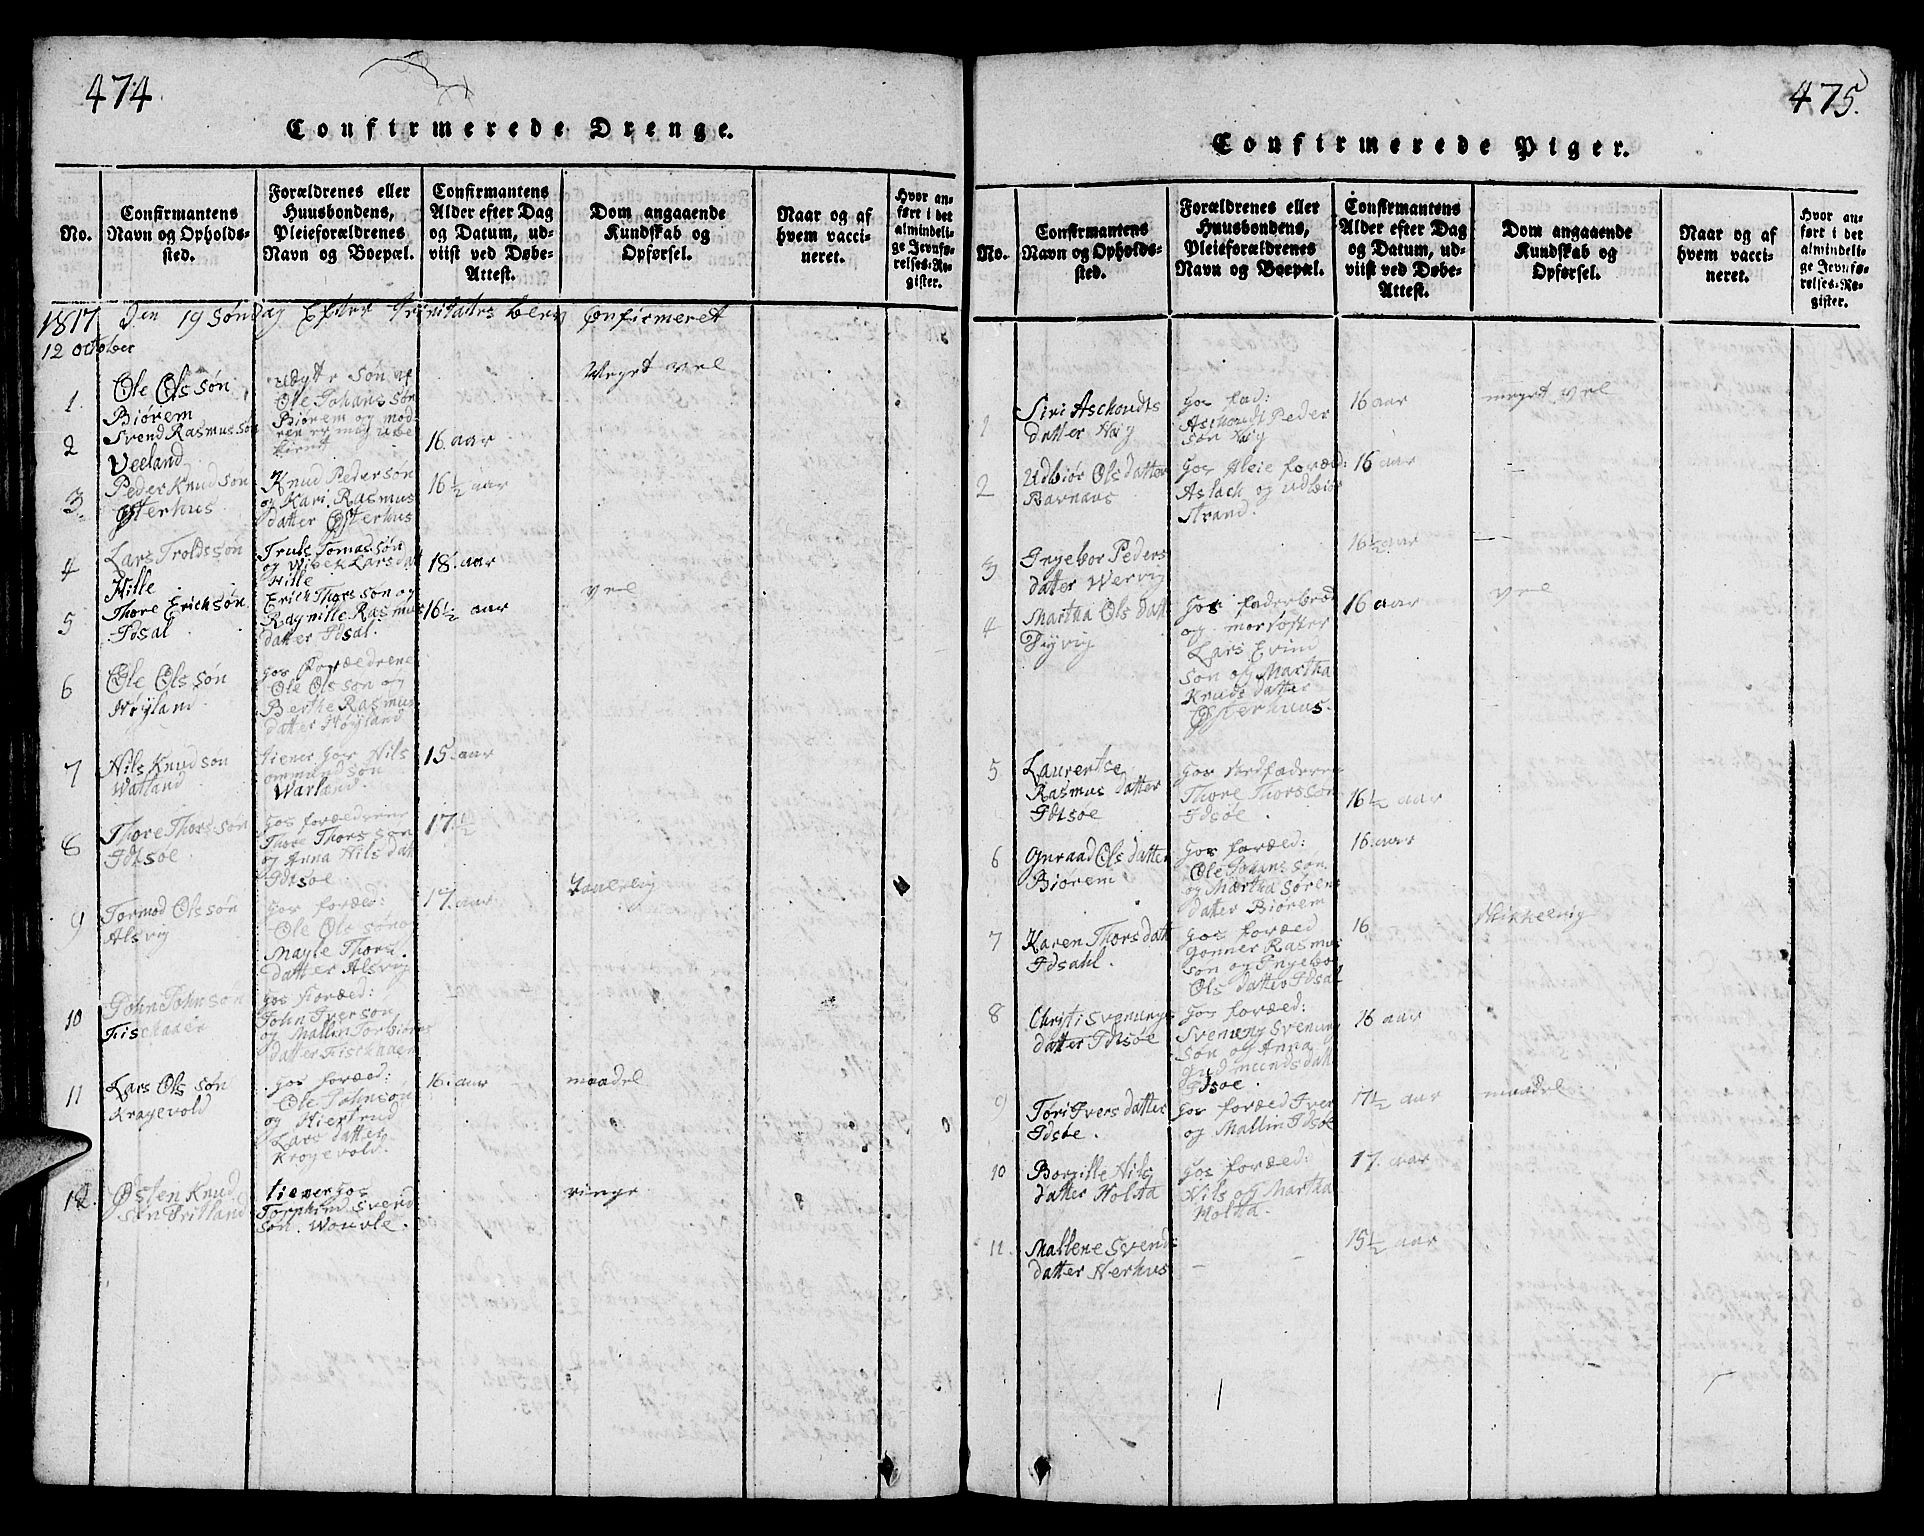 474.
Confirmerede Drenge.
No.
Confirmantens
Navn og Opholds-
sted.
Forældrenes eller
Huusbondens,
Pleieforældrenes
Navn og Boepæl.
Confirmantens
Alder efter Dag
og Datum, ud-
viist ved Døbe-
Attest.
Dom angaaende
Kundskab og
Opførsel.
Naar og af
hvem vacci-
neret.
Hvor an-
ført i det
almindeli-
ge Jevnfø-
relses-Re-
gister.
1817 Den 19 Søndag Efter Trinitates blev Confirmeret
12 october
1.
Ole Olssøn
Biørem
Uægte Søn af
Ole Johanssøn
Biørem og mod
Meget vel
2
Svend Rasmussøn
Veeland
16. aar
3.
Peder Knudsøn
Østerhus
Knud Pedersøn
og Kari Rasmus
datter Østerhus
16 ½ aar
4
Lars Troldssøn
Hille
Truls Tomassøn
og Wibek Larsdat
Hille
18. aar
5
Thore Erichsøn
Idsal
Erich Thorssøn og
Ragnille Rasmus
datter Idsal.
16 ½ aar
vel
6
Ole Olssøn
Høyland
hos Foræeldrene
Ole Olssøn og
Berthe Rasmus
datter Høyland
7
Nils Knudsøn
Watland
tiener hos Nils
ommundsøn
Warland.
15. aar
8
Thore Thorssøn
Idtsøe
hos foræeldrene
Thore Thorssøn
og Anna Nils dat
Idtsøe
17 ½
9
Tormod Olssøn
Alsvig
hos foræed:
Ole Ols søn og
Magle Thors
datter Alsvig
17. aar
Taalelig
10
John Johnsøn
Fischaaen
hos Foræed:
John Iversøn
og Mallin Torbiørns
datter Fischaaen
11
Lars Ols søn
Kragevold
hos foræed:
Ole Johnsøn
og Kiertrud
Lars datter
Kragevold.
16. aar
maadel
12.
Østen Knud
søn Tritland
tiener hos
Torchild Svend
søn. Wouvle.
ringe
475.
Confirmerede Piger.
No.
Confirmantens
Navn og Opholds-
sted.
Forældrenes eller
Huusbondens,
Pleieforældrenes
Navn og Boepæl.
Confirmantens
Alder efter Dag
og Datum, ud-
viist ved Døbe-
Attest.
Dom angaaende
Kundskab og
Opførsel.
Naar og af
hvem vacci-
neret.
Hvor an-
ført i det
almindeli-
ge Jevnfø-
relses-Re-
gister.
1
Siri Aschoudts
datter Høg
hos fad:
Aschoudt Peder
søn Høg
16 aar
meget vel
2
Udbiør Ols datter
Barnaus
hos Pleie foræld:
Aslach og Udbiør
Strand.
16 aar
3
Ingebor Peders
datter Wervig
16 ½ aar
4
Martha Ols datt
hos faderbrod
og morsøster
Lars Evind
søn og Martha
Knuds datter
Østerhuus.
16 aar
vel
5
Laurentse
Rasmus datter
Idtsøe
hos stedfaderen
Thore Thorssøn
Idsøe.
16 ½ aar
6
Guraad Ols datter
Biørem
hos foræld:
Ole Johans søn
og Martha Søren
datter Biørem
16. aar
7
Karen Thors datt
Idsahl.
hos foræed
Gonner Rasmus
søn og Ingebor
Ols datter Idsal
16
8
Christi Svenungs
datter Idtsøe
hos foræed:
Svenung Svenung
søn og Anna
Gudmunds datt
Idsøe.
16 aar
9
Tori Ivers datter
Idsøe.
hos foræed Iver
og Mallin Idsøe
17 ½ aar
maadel
10
Borgille Nils
datter Holta
hos foræed:
Nils og Martha
Molta.
17. aar
11.
Mallene Svends
datter Nerhus
15 ½ aar